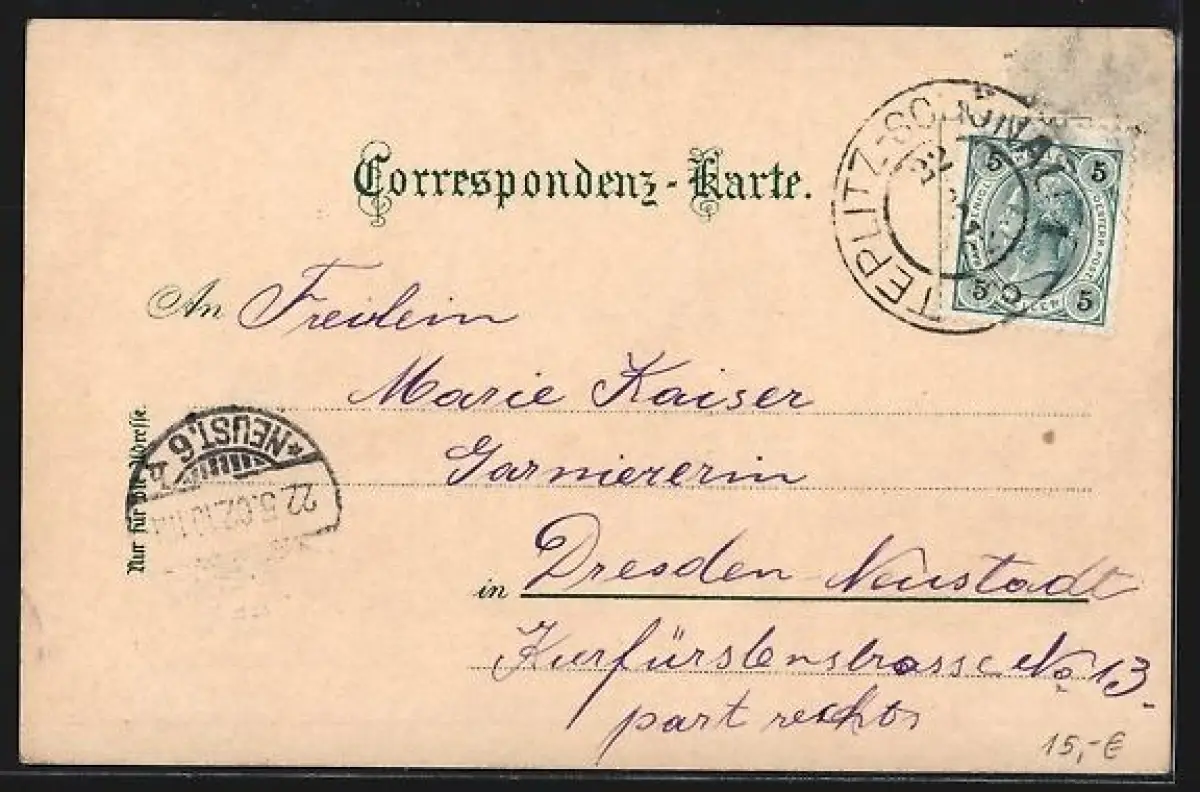 Correspondenz-Karte.
TEPLITZ-SCHÖNAU 1
22
5 5
5 5
OESTERR. POST
HELLER
An Freilein
Marie Kaiser
Garniererin
in Dresden Neustadt
Kurfürstenstrasse No 13.
part rechts
Nur für die Adresse.
*NEUST. 6
22.5.02.
15,-€